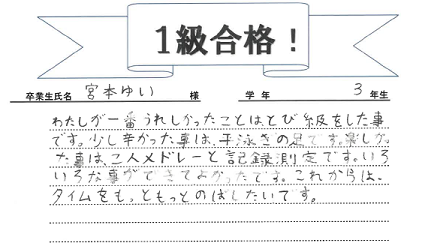 1級合格！
卒業生氏名 宮本ゆい 様 学年 3 年生
わたしが一番うれしかったことはとび級をした事
です。少し辛かった事は、平泳ぎの足です。楽しか
た事は、二人メドレーと記録測定です。いろ
いろな事ができてよかったです。これからは、
タイムをもっともっとのばしたいです。